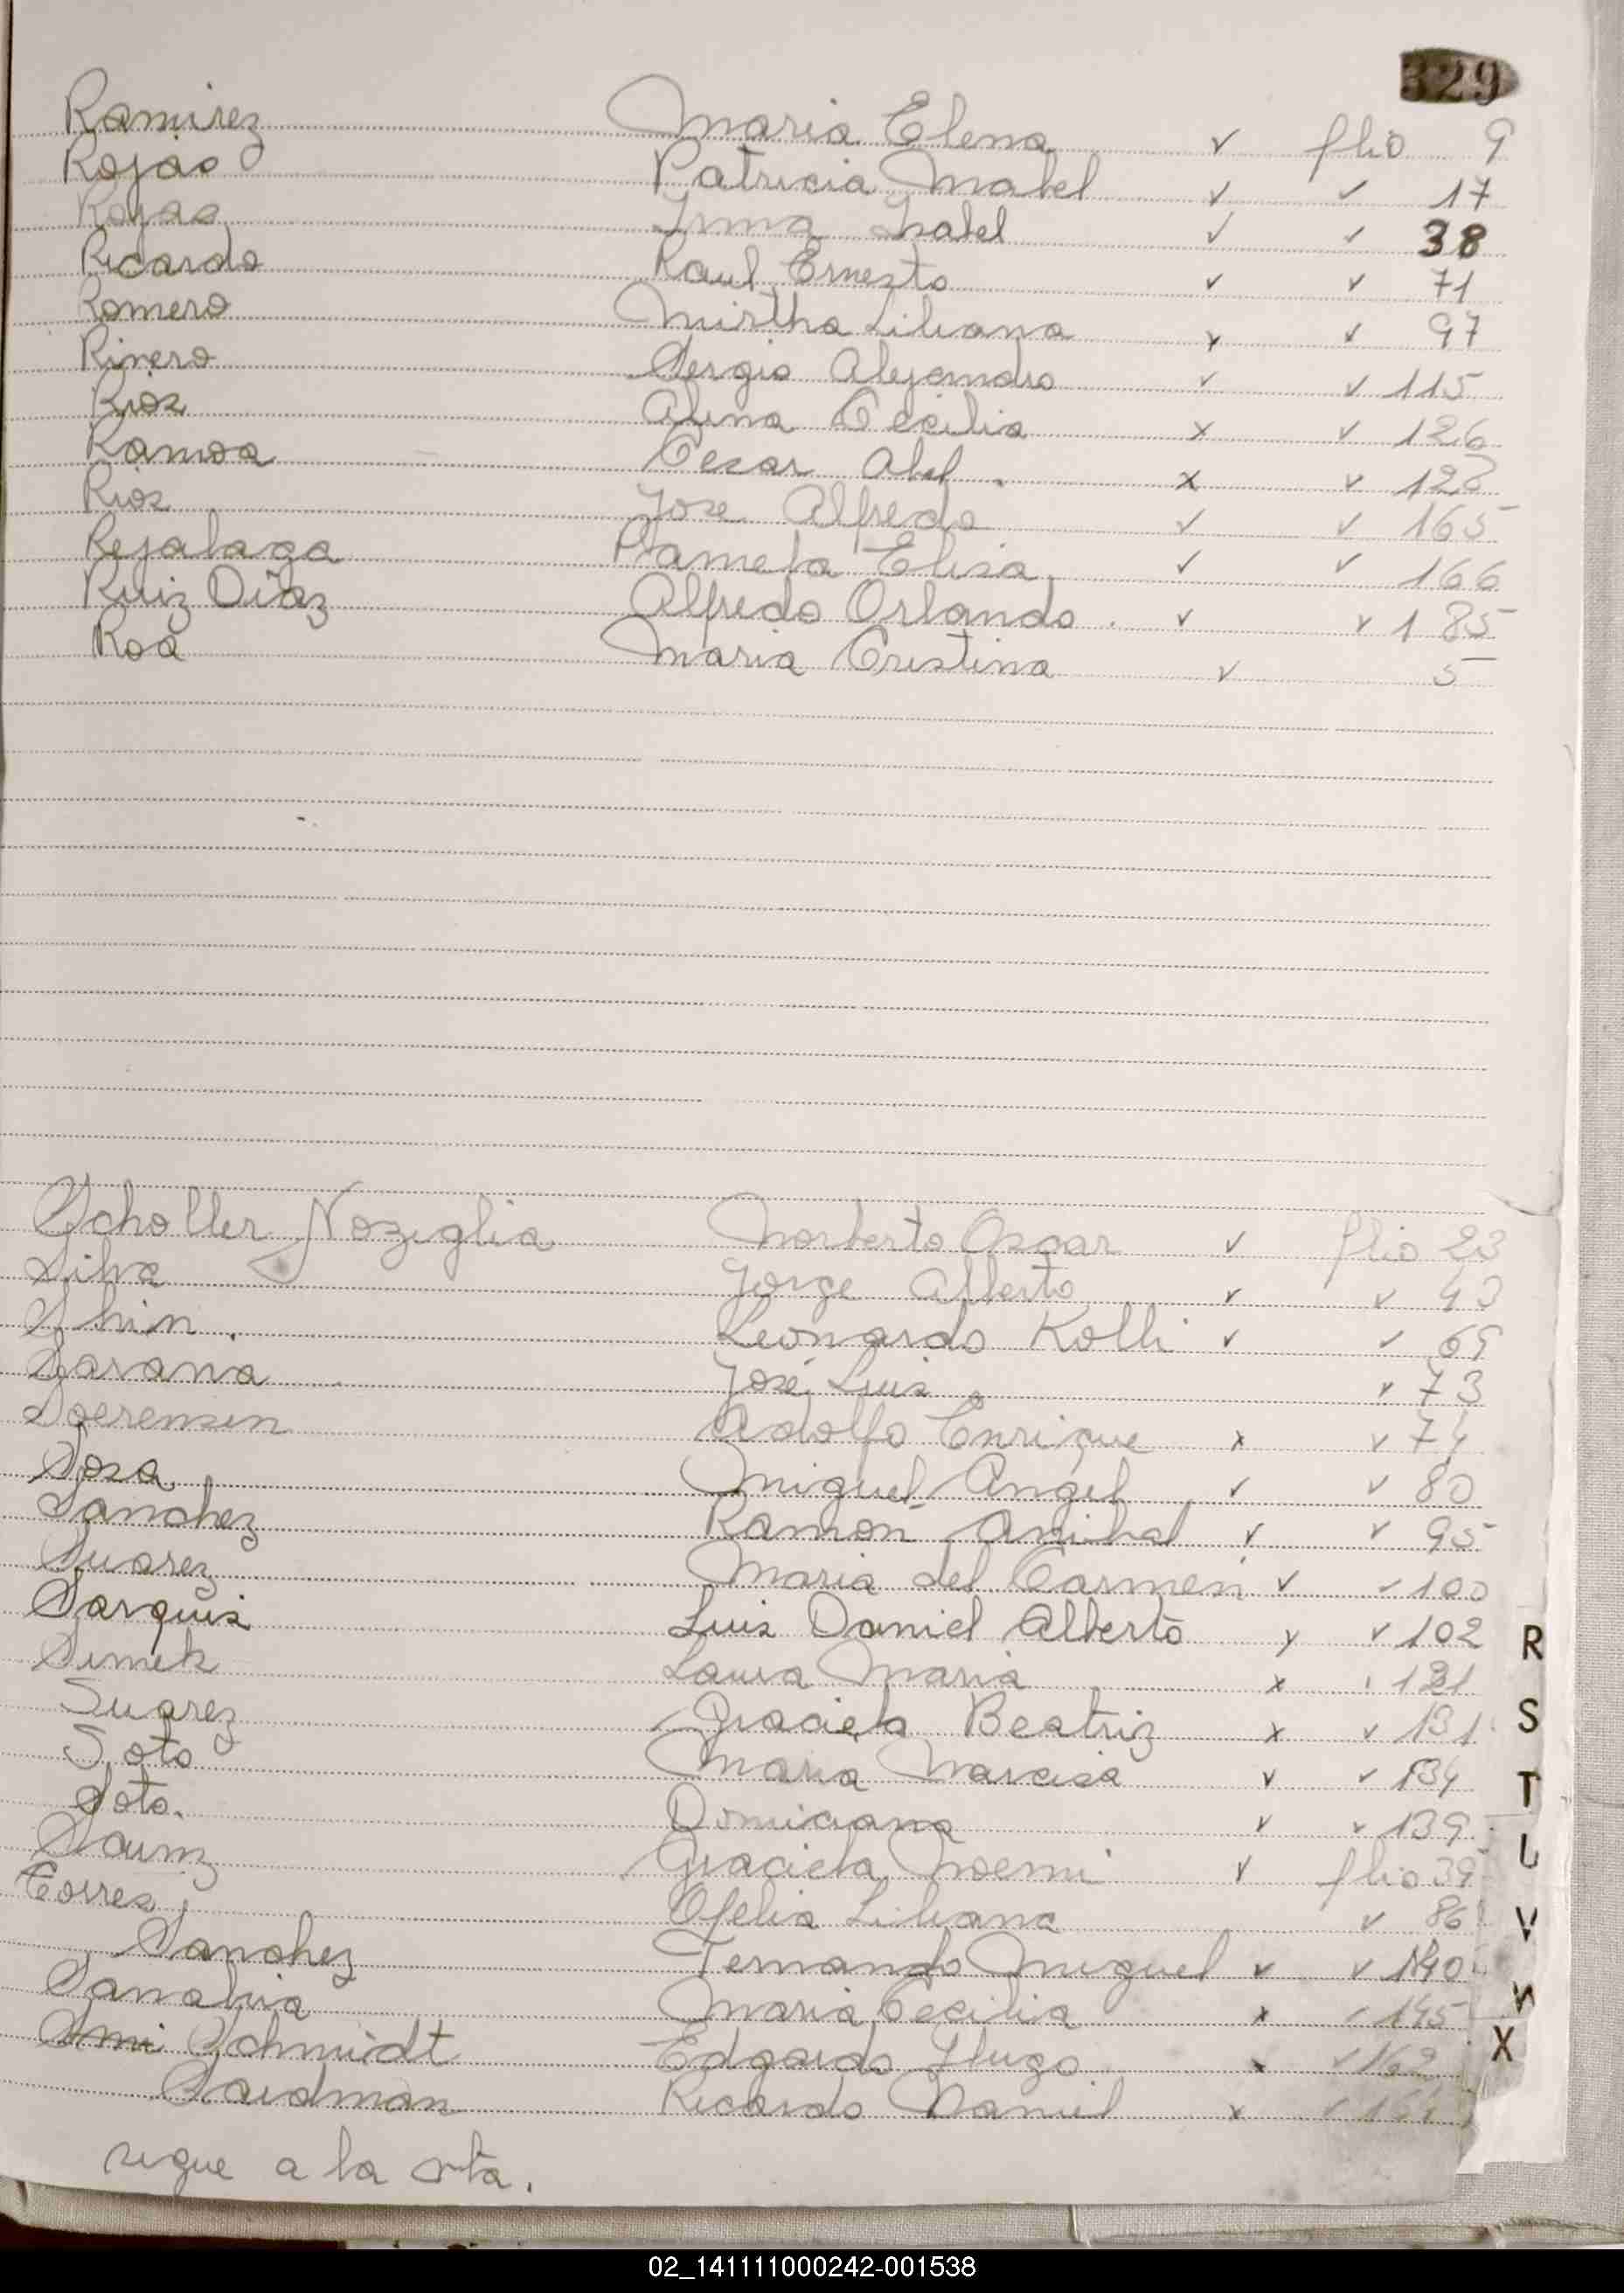 329
Ramirez Maria Elena ✓ flio 9
Rojas Patricia Mabel ✓ ✓ 17
Rojas Irma Isabel ✓ ✓ 38
Ricardo Raul Ernesto ✓ ✓ 71
Romero Mirtha Liliana ✓ ✓ 97
Rivero Sergio Alejandro ✓ ✓ 115
Rios Alina Cecilia x ✓ 126
Ramoa Cesar Abel x ✓ 128
Rios Jose Alfredo ✓ ✓ 165
Rejalaga Pamela Elisa ✓ ✓ 166
Ruiz Diaz Alfredo Orlando . ✓ ✓ 185
Roa Maria Cristina ✓ 5
Scholler Noziglia Norberto Oscar ✓ flio 23
Silva Jorge Alberto ✓ ✓ 43
Shin . Leonardo Kolli ✓ ✓ 69
Sarana José Luis ✓ 73
Soerensen Adolfo Enrique x ✓ 74
Sosa Miguel Angel ✓ ✓ 80
Sanchez Ramon Anibal ✓ ✓ 95
Suarez Maria del Carmen ✓ ✓ 100
Sarquis Luis Daniel Alberto y ✓ 102
Simek Laura Maria x 121
Suarez Graciela Beatriz x ✓ 131
Soto Maria Narcisa ✓ ✓ 134
Soto. Domiciana ✓ ✓ 139
Sainz Graciela Noemi ✓ flio 39
Torres Ofelia Liliana ✓ 86
Sanchez Fernando Miguel ✓ ✓ 140
Sanabria Maria Cecilia x ✓ 145
Schmidt Edgardo Hugo x ✓ 162
Saidman Ricardo Daniel x ✓
sigue a la vta.
R
S
T
U
V
W
X
02_141111000242-001538